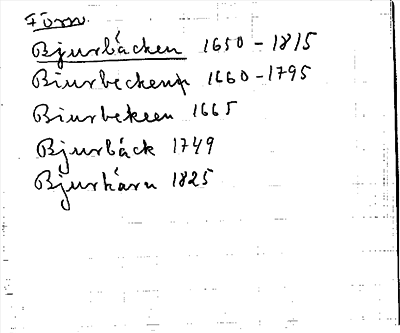 Form.
Bjurbäcken 1650-1815
Biurbecken 1660-1795
Biurbekeen 1665
Bjurbäck 1749
Bjurkärn 1825